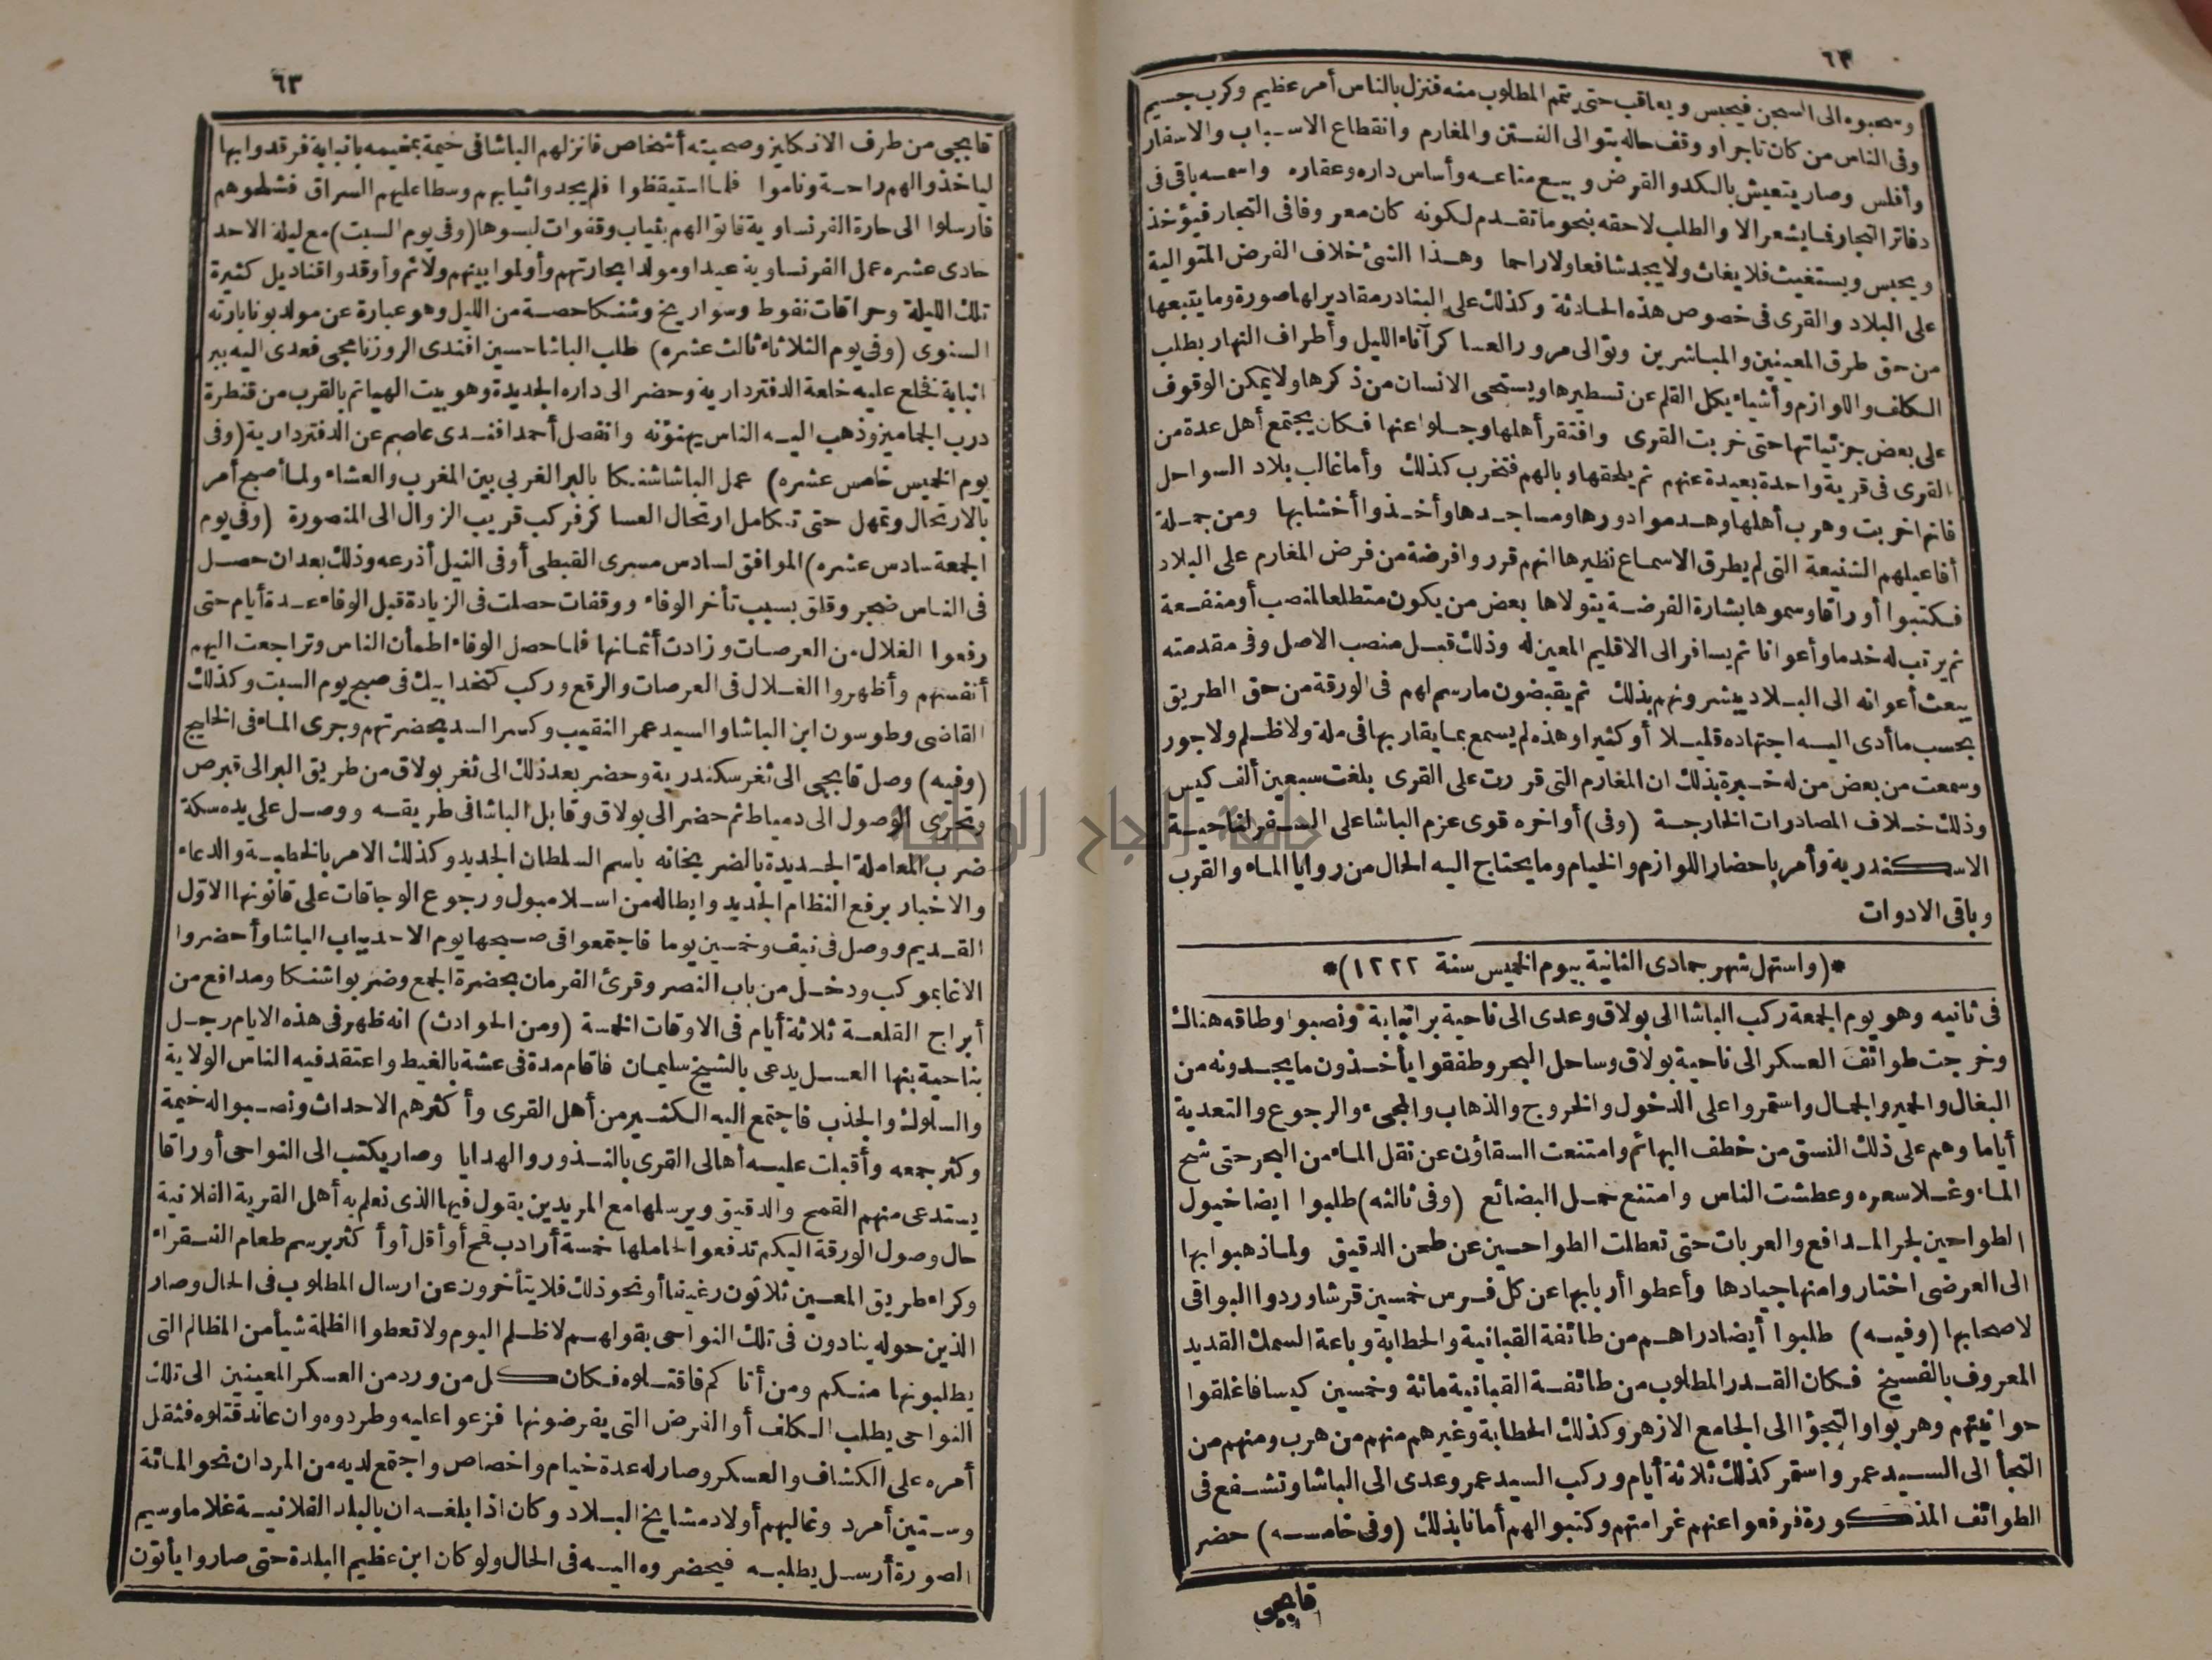 ٦٢
وسحبوه الى السجن فيحبس ويعاقب حتى يتمم المطلوب منه فنزل بالناس أمر عظيم وكرب جسيم
وفى الناس من كان تاجرا ووقف حاله بتوالى الفتن والمغارم وانقطاع الاسباب والاسفار
وأفلس وصار يتعيش بالكد والقرض وبيع متاعه وأساس داره وعقاره واسمه باقى فى
دفاتر التجار فما يشعر الا والطلب لاحقه بنحو ما تقدم لكونه كان معروفا فى التجار فيؤخذ
ويحبس ويستغيث فلا يغاث ولا يجد شافعا ولا راحما وهذا الشئ خلاف الفرض المتوالية
على البلاد والقرى فى خصوص هذه الحادثة وكذلك على البنادر مقادير لها صورة وما يتبعها
من حق طرق المعينين والمباشرين وتوالى مرور العساكر آناء الليل وأطراف النهار بطلب
الكلف واللوازم وأشياء يكل القلم عن تسطيرها ويستحى الانسان من ذكرها ولا يمكن الوقوف
على بعض جزئياتها حتى خربت القرى وافتقر أهلها وجلوا عنها فكان يجتمع أهل عدة من
القرى فى قرية واحدة بعيدة عنهم ثم يلحقها وبالهم فتخرب كذلك وأما غالب بلاد السواحل
فانها خربت وهرب أهلها وهدموا دورها ومساجدها وأخذوا أخشابها ومن جملة
أفاعيلهم الشنيعة التى لم يطرق الاسماع نظيرها انهم قرروا فرضة من فرض المغارم على البلاد
فكتبوا أوراقا وسموها بشارة الفرضة يتولاها بعض من يكون متطلعا لمنصب أو منفعة
ثم يرتب له خدما وأعوانا ثم يسافر الى الاقليم المعين له وذلك قبل منصب الاصل وفى مقدمته
يبعث أعوانه الى البلاد يبشرونهم بذلك ثم يقبضون ما رسم لهم فى الورقة من حق الطريق
بحسب ما أدى اليه اجتهاده قليلا أو كثيرا وهذه لم يسمع بما يقاربها فى ملة ولا ظلم ولا جور
وسمعت من بعض من له خبرة بذلك ان المغارم التى قررت على القرى بلغت سبعين ألف كيس
وذلك خلاف المصادرات الخارجة (وفى) أواخره قوى عزم الباشا على السفر لناحية
الاسكندرية وأمر باحضار اللوازم والخيام وما يحتاج اليه الحال من روايا الماء والقرب
وباقى الادوات
*(واستهل شهر جمادى الثانية بيوم الخميس سنة ١٢٢٢)*
فى ثانيه وهو يوم الجمعة ركب الباشا الى بولاق وعدى الى ناحية بر انبابة ونصبوا وطاقه هناك
وخرجت طوائف العسكر الى ناحية بولاق وساحل البحر وطفقوا يأخذون ما يجدونه من
البغال والحمير والجمال واستمروا على الدخول والخروج والذهاب والمجىء والرجوع والتعدية
أياما وهم على ذلك النسق من خطف البهائم وامتنعت السقاؤن عن نقل الماء من البحر حتى شح
الماء وغلا سعره وعطشت الناس وامتنع حمل البضائع (وفى ثالثه) طلبوا ايضا خيول
الطواحين لجر المدافع والعربات حتى تعطلت الطواحين عن طحن الدقيق ولما ذهبوا بها
الى العرضى اختاروا منها جيادها وأعطوا أربابها عن كل فرس خمسين قرشا وردوا البواقى
لاصحابها (وفيه) طلبوا أيضا دراهم من طائفة القبانية والحطابة وباعة السمك القديد
المعروف بالفسيخ فكان القدر المطلوب من طائفة القبانية مائة وخمسين كيسا فاغلقوا
حوانيتهم وهربوا والتجؤا الى الجامع الازهر وكذلك الحطابة وغيرهم منهم من هرب ومنهم من
التجأ الى السيد عمر واستمر كذلك ثلاثة أيام وركب السيد عمر وعدى الى الباشا وتشفع فى
الطوائف المذكورة فرفعوا عنهم غرامتهم وكتبوا لهم أمانا بذلك (وفى خامسه) حضر
قابجى
٦٣
قابجى من طرف الانكليز وصحبته أشخاص فانزلهم الباشا فى خيمة بمخيمه بانبابة فرقدوا بها
ليأخذوا لهم راحة وناموا فلما استيقظوا فلم يجدوا ثيابهم وسطا عليهم السراق فشلحوهم
فارسلوا الى حارة الفرنساوية فاتوا لهم بثياب وقفوات لبسوها (وفى يوم السبت) مع ليلة الاحد
حادى عشره عمل الفرنساوية عيدا ومولدا بحارتهم وأولموا بينهم ولائم وأوقدوا قناديل كثيرة
تلك الليلة وحراقات نفوط وسواريخ وشنكا حصة من الليل وهو عبارة عن مولد بونابارته
السنوى (وفى يوم الثلاثاء ثالث عشره) طلب الباشا حسين افندى الروزنامجى فعدى اليه ببر
انبابة فخلع عليه خلعة الدفتردارية وحضر الى داره الجديدة وهو بيت الهياتم بالقرب من قنطرة
درب الجماميز وذهب اليه الناس يهنؤنه وانفصل أحمد افندى عاصم عن الدفتردارية (وفى
يوم الخميس خامس عشره) عمل الباشا شنكا بالبر الغربى بين المغرب والعشاء ولما أصبح أمر
بالارتحال وتمهل حتى تكامل ارتحال العسا كر فركب قريب الزوال الى المنصورة (وفى يوم
الجمعة سادس عشره) الموافق لسادس مسرى القبطى أوفى النيل أذرعه وذلك بعد ان حصل
فى الناس ضجر وقلق بسبب تأخر الوفاء ووقفات حصلت فى الزيادة قبل الوفاء عدة أيام حتى
رفعوا الغلال من العرصات وزادت أثمانها فلما حصل الوفاء اطمأن الناس وتراجعت اليهم
أنفسهم وأظهروا الغلال فى العرصات والرقع وركب كتخدا بيك فى صبح يوم السبت وكذلك
القاضى وطوسون ابن الباشا والسيد عمر النقيب وكسر السد بحضرتهم وجرى الماء فى الخليج
(وفيه) وصل قابجى الى ثغر سكندرية وحضر بعد ذلك الى ثغر بولاق من طريق البر الى قبرص
وتحرى الوصول الى دمياط ثم حضر الى بولاق وقابل الباشا فى طريقه ووصل على يده سكة
ضرب المعاملة الجديدة بالضربخانه باسم السلطان الجديد وكذلك الامر بالخطبة والدعاء
والاخبار برفع النظام الجديد وابطاله من اسلامبول ورجوع الوجاقات على قانونها الاول
القديم ووصل فى نيف وخمسين يوما فاجتمعوا فى صبحها يوم الاحد بباب الباشا وأحضروا
الاغا بموكب ودخل من باب النصر وقرئ الفرمان بحضرة الجمع وضربوا شنكا ومدافع من
أبراج القلعة ثلاثة أيام فى الاوقات الخمسة (ومن الحوادث) انه ظهر فى هذه الايام رجل
بناحية بنها العسل يدعى بالشيخ سليمان فاقام مدة فى عشة بالغيط واعتقد فيه الناس الولاية
والسلوك والجذب فاجتمع اليه الكثير من أهل القرى وأكثرهم الاحداث ونصبوا له خيمة
وكثر جمعه وأقبلت عليه أهالى القرى بالنذور والهدايا وصار يكتب الى النواحى أوراقا
يستدعى منهم القمح والدقيق ويرسلها مع المريدين يقول فيها الذى نعلم به أهل القرية الفلانية
حال وصول الورقة اليكم تدفعوا لحاملها خمسة أرادب قمح أو أقل أو أكثر برسم طعام الفقراء
وكراء طريق المعين ثلاثون رغيفا أو نحو ذلك فلا يتأخرون عن ارسال المطلوب فى الحال وصار
الذين حوله ينادون فى تلك النواحى بقولهم لا ظلم اليوم ولا تعطوا الظلمة شيأ من المظالم التى
يطلبونها منكم ومن أتاكم فاقتلوه فكان كل من ورد من العسكر المعينين الى تلك
النواحى يطلب الكلف أو الفرض التى يفرضونها فزعوا عليه وطردوه وان عاند قتلوه فثقل
أمره على الكشاف والعسكر وصار له عدة خيام واخصاص واجتمع لديه من المردان نحو المائة
وستين أمرد وغالبهم أولاد مشايخ البلاد وكان اذا بلغه ان بالبلد الفلانية غلاما وسيم
الصورة أرسل يطلبه فيحضروه اليه فى الحال ولو كان ابن عظيم البلدة حتى صاروا يأتون
جامعة النجاح الوطنية